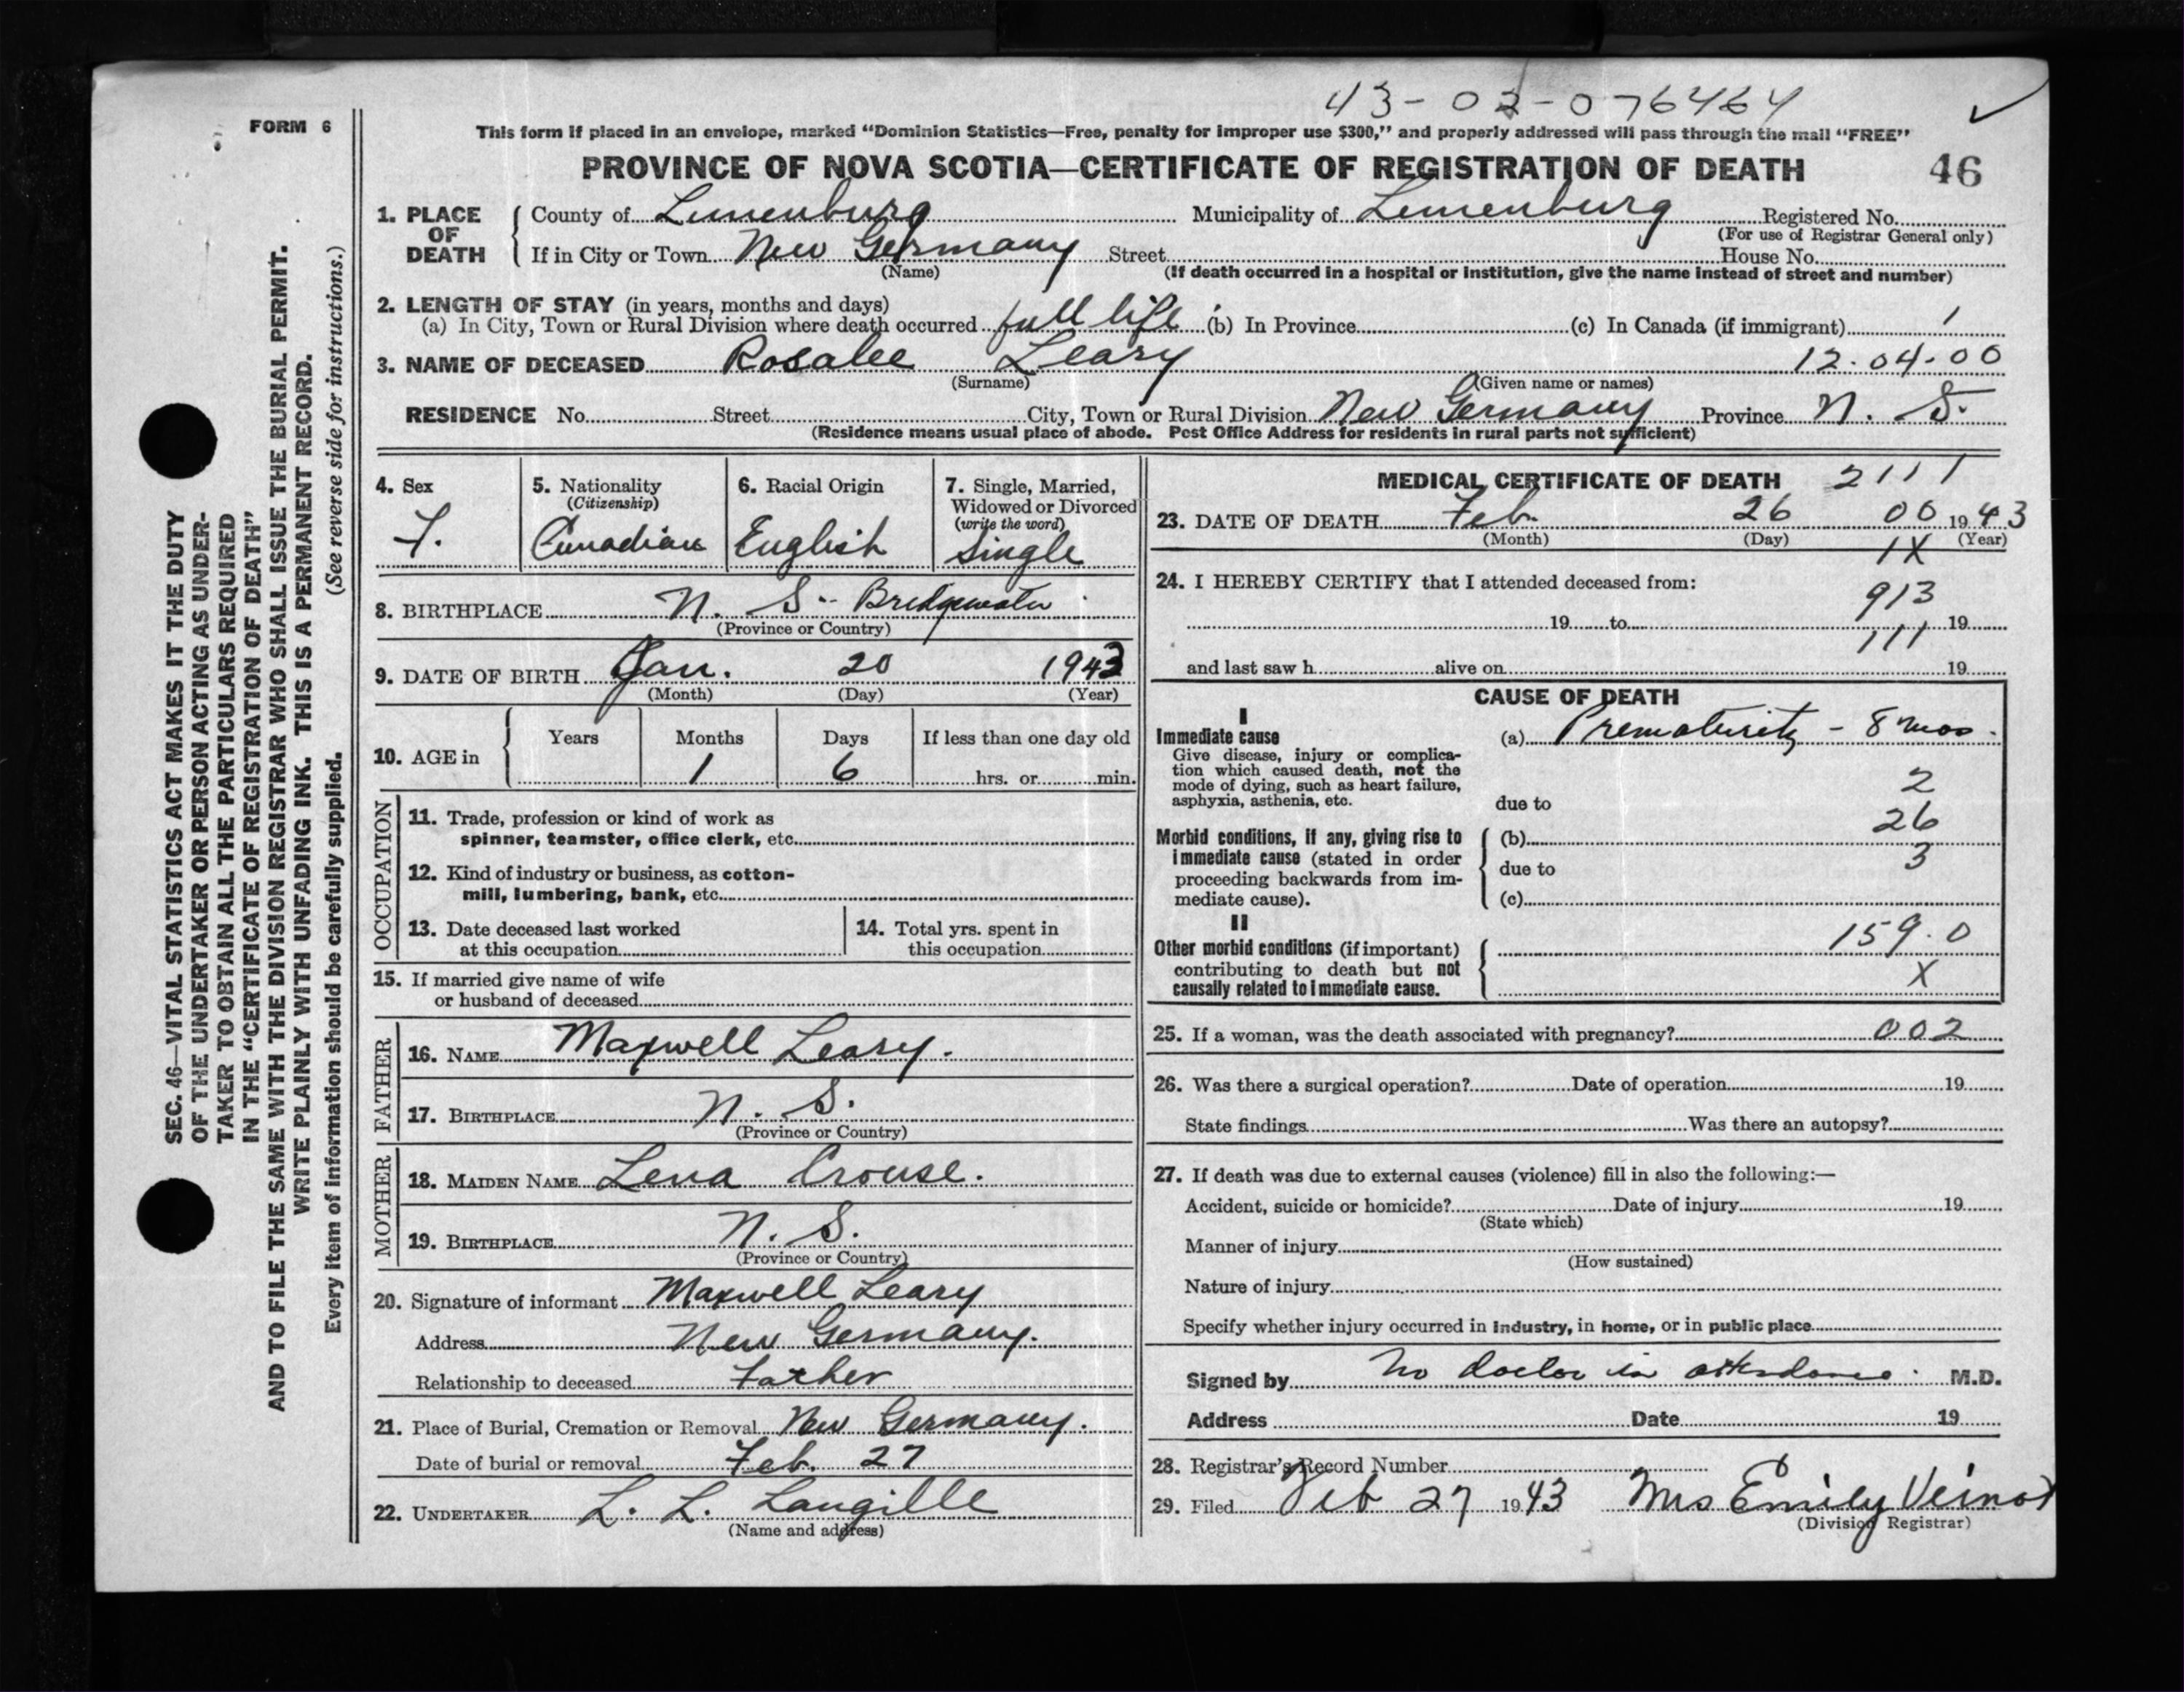 43-02-076464 ✓
FORM 6
This form if placed in an envelope, marked "Dominion Statistics—Free, penalty for improper use $300," and properly addressed will pass through the mail "FREE"
PROVINCE OF NOVA SCOTIA—CERTIFICATE OF REGISTRATION OF DEATH 46
1. PLACE OF DEATH
County of Lunenburg Municipality of Lunenburg Registered No.
(For use of Registrar General only)
If in City or Town New Germany Street House No.
(Name) (If death occurred in a hospital or institution, give the name instead of street and number)
2. LENGTH OF STAY (in years, months and days)
(a) In City, Town or Rural Division where death occurred full life (b) In Province (c) In Canada (if immigrant) 1
3. NAME OF DECEASED Rosalee Leary 12.04.00
(Surname) (Given name or names)
RESIDENCE No. Street City, Town or Rural Division New Germany Province N. S.
(Residence means usual place of abode. Post Office Address for residents in rural parts not sufficient)
4. Sex
F.
5. Nationality
(Citizenship)
Canadian
6. Racial Origin
English
7. Single, Married,
Widowed or Divorced
(write the word)
Single
8. BIRTHPLACE N. S. - Bridgewater
(Province or Country)
9. DATE OF BIRTH Jan. 20 1943
(Month) (Day) (Year)
10. AGE in
Years Months Days If less than one day old
1 6 hrs. or min.
OCCUPATION
11. Trade, profession or kind of work as
spinner, teamster, office clerk, etc.
12. Kind of industry or business, as cotton-
mill, lumbering, bank, etc.
13. Date deceased last worked
at this occupation
14. Total yrs. spent in
this occupation
15. If married give name of wife
or husband of deceased
FATHER
16. NAME Maxwell Leary.
17. BIRTHPLACE N. S.
(Province or Country)
MOTHER
18. MAIDEN NAME Lena Crouse.
19. BIRTHPLACE N. S.
(Province or Country)
20. Signature of informant Maxwell Leary
Address New Germany.
Relationship to deceased Father
21. Place of Burial, Cremation or Removal New Germany.
Date of burial or removal Feb. 27
22. UNDERTAKER L. L. Langille
(Name and address)
MEDICAL CERTIFICATE OF DEATH 2111
23. DATE OF DEATH Feb. 26 00 1943
(Month) (Day) (Year)
1X
24. I HEREBY CERTIFY that I attended deceased from:
913
19 to 19
111
and last saw h alive on 19
CAUSE OF DEATH
I
Immediate cause
Give disease, injury or complica-
tion which caused death, not the
mode of dying, such as heart failure,
asphyxia, asthenia, etc.
(a) Prematurity - 8 mos.
2
due to
26
Morbid conditions, if any, giving rise to
immediate cause (stated in order
proceeding backwards from im-
mediate cause).
(b)
3
due to
(c)
II
Other morbid conditions (if important)
contributing to death but not
causally related to immediate cause.
159.0
X
25. If a woman, was the death associated with pregnancy? 002
26. Was there a surgical operation? Date of operation 19
State findings Was there an autopsy?
27. If death was due to external causes (violence) fill in also the following:—
Accident, suicide or homicide? Date of injury 19
(State which)
Manner of injury
(How sustained)
Nature of injury
Specify whether injury occurred in industry, in home, or in public place
Signed by No doctor in attendance. M.D.
Address Date 19
28. Registrar's Record Number
29. Filed Feb 27 1943 Mrs Emily Veinot
(Division Registrar)
SEC. 46—VITAL STATISTICS ACT MAKES IT THE DUTY
OF THE UNDERTAKER OR PERSON ACTING AS UNDER-
TAKER TO OBTAIN ALL THE PARTICULARS REQUIRED
IN THE "CERTIFICATE OF REGISTRATION OF DEATH"
AND TO FILE THE SAME WITH THE DIVISION REGISTRAR WHO SHALL ISSUE THE BURIAL PERMIT.
WRITE PLAINLY WITH UNFADING INK. THIS IS A PERMANENT RECORD.
Every item of information should be carefully supplied. (See reverse side for instructions.)